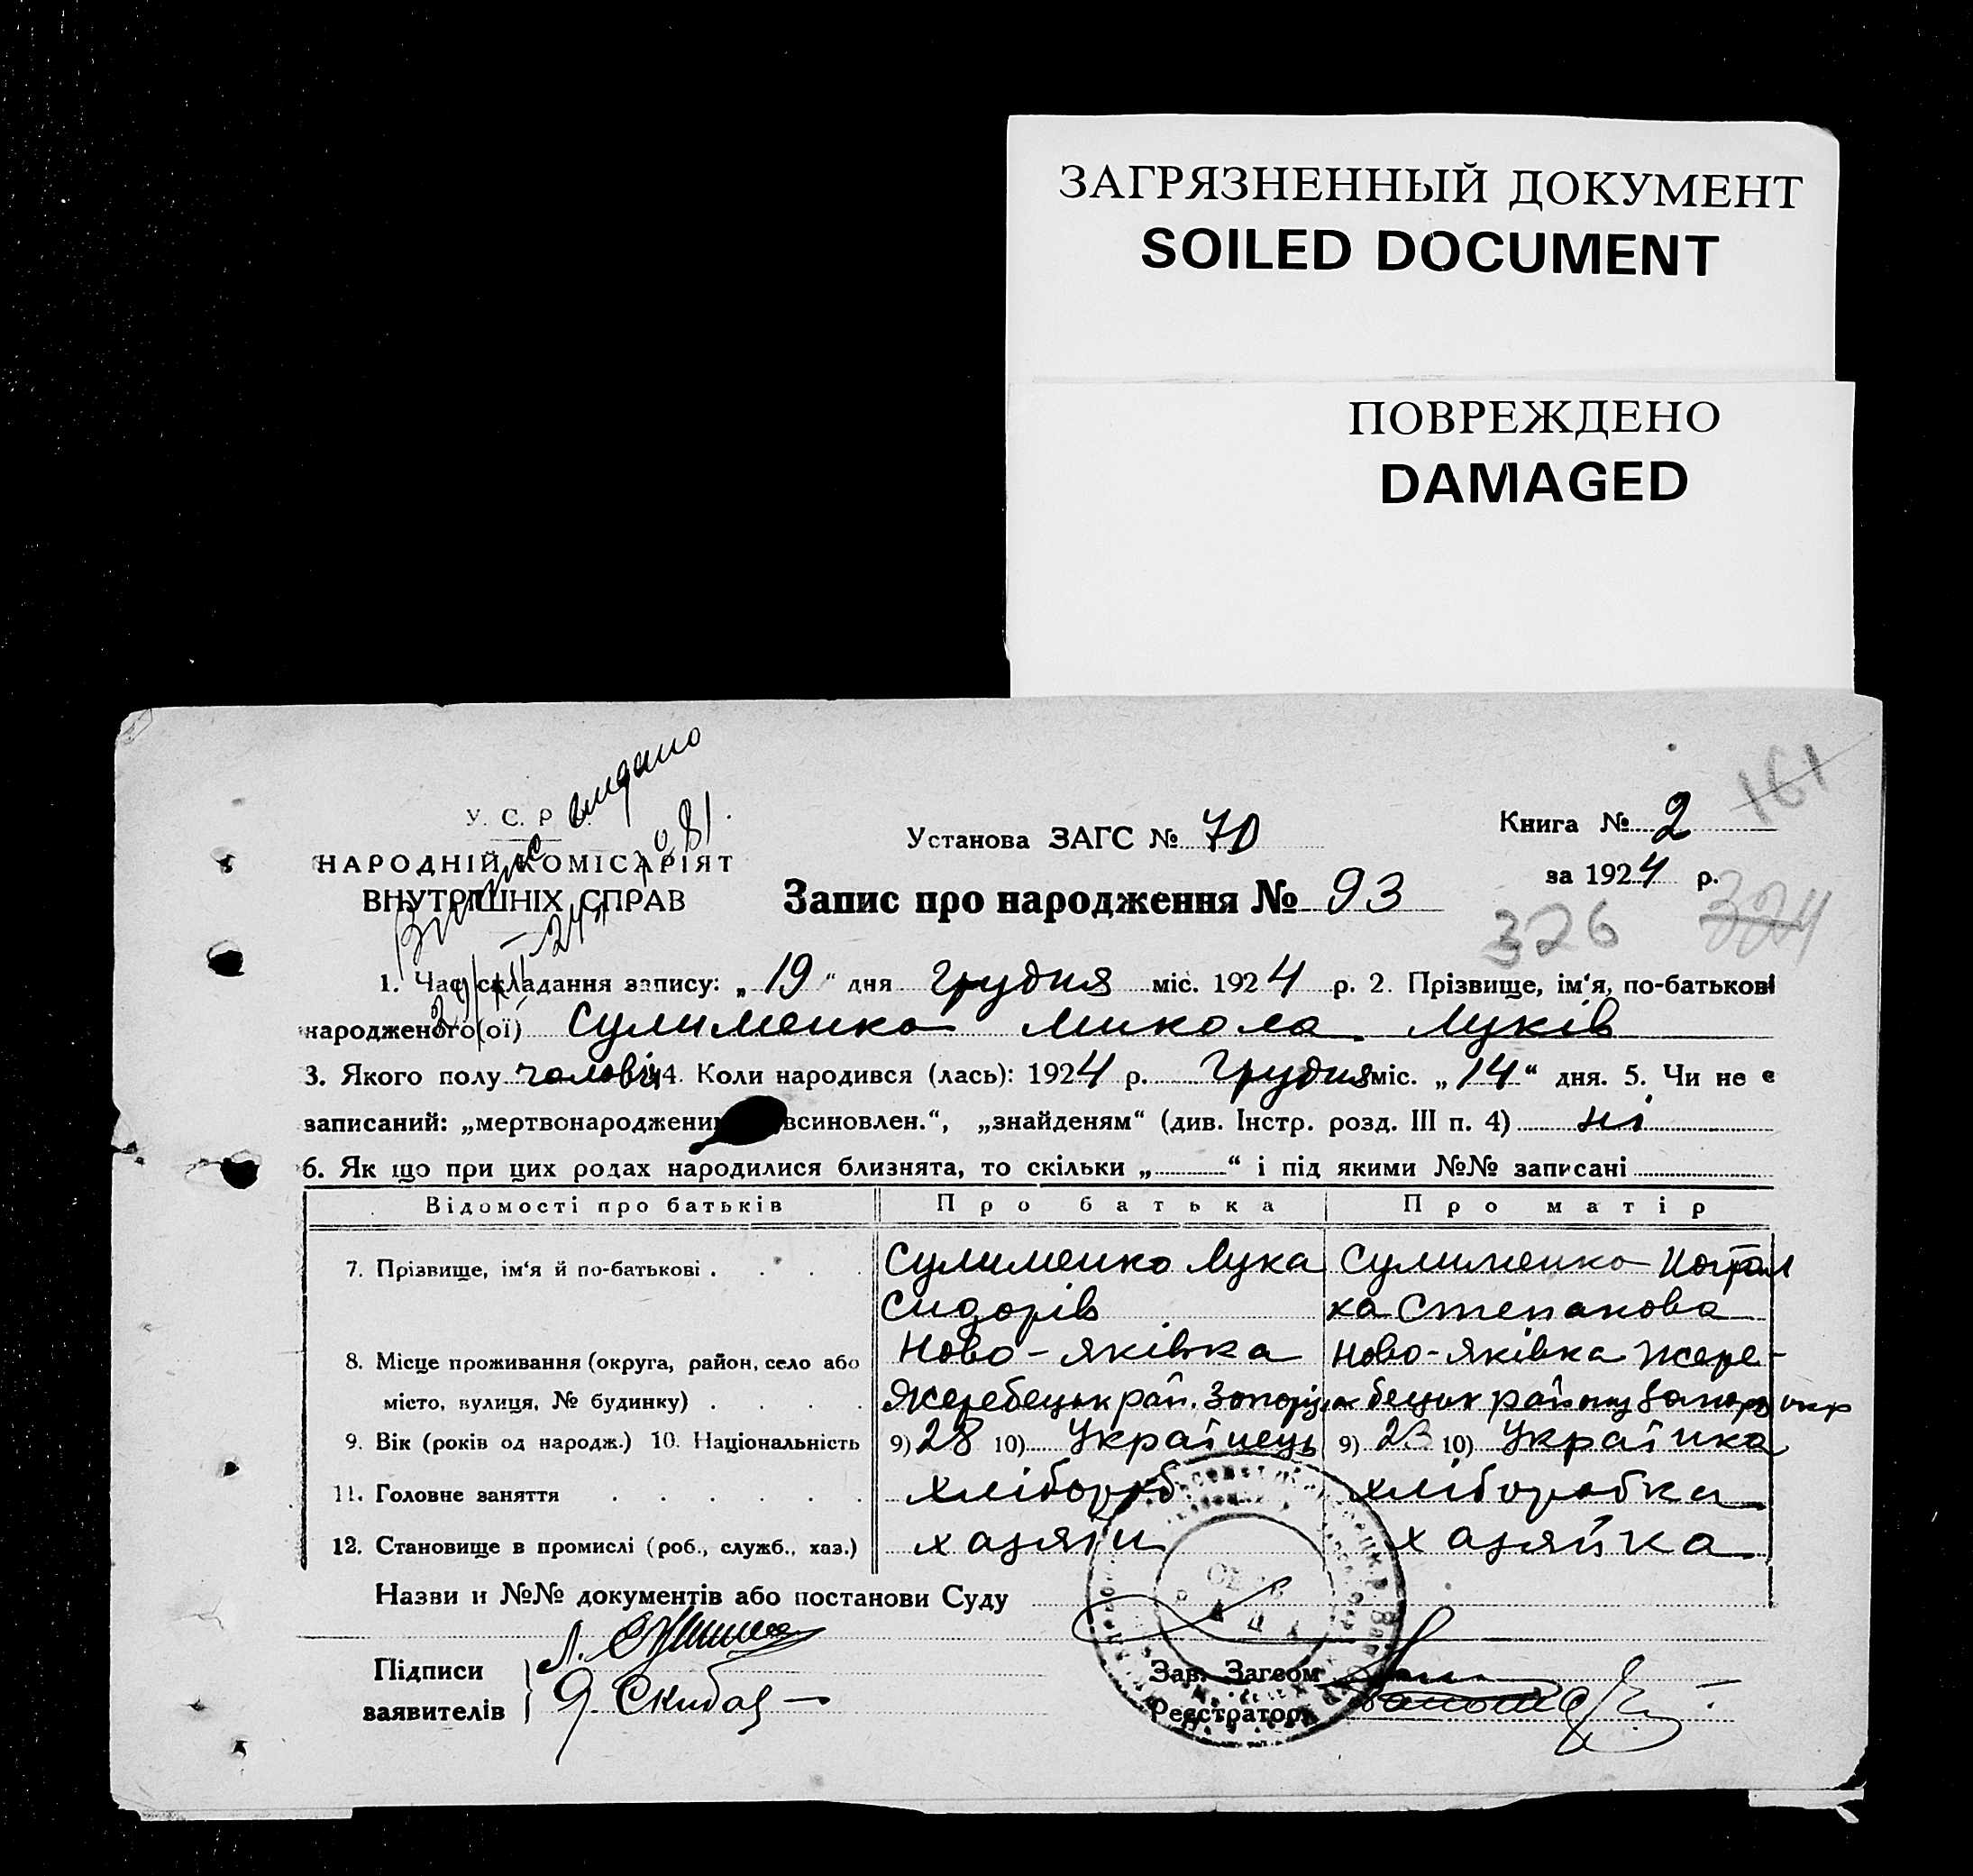 ЗАГРЯЗНЕННЫЙ ДОКУМЕНТ
SOILED DOCUMENT
ПОВРЕЖДЕНО
DAMAGED
161
видано
У. С. Р.
НАРОДНІЙ КОМІСАРІЯТ
ВНУТРІШНІХ СПРАВ
Установа ЗАГС № 70
Книга № 2
за 1924 р.
Запис про народження № 93
326 324
1. Час складання запису: „19“ дня грудня міс. 1924 р. 2. Прізвище, ім‘я, по-батькові
народженого(ої) Сулименко Микола Луків
3. Якого полу чоловіч 4. Коли народився (лась): 1924 р. грудня міс. „14“ дня. 5. Чи не є
записаний: „мертвонароджени всиновлен.“, „знайденям“ (див. Інстр. розд. III п. 4) ні
6. Як що при цих родах народилися близнята, то скільки „ “ і під якими №№ записані
Відомості про батьків Про батька Про матір
7. Прізвище, ім‘я й по-батькові . . . . Сулименко Лука Сулименко
Сидорів ка Степанова
8. Місце проживання (округа, район, село або Ново-Яківка Ново-Яківка Жере-
місто, вулиця, № будинку) . . . . Жеребецьк рай. бецьк району
9. Вік (років од народж.) 10. Національність 9) 28 10) Українець 9) 23 10) Українка
11. Головне заняття . . . . . . хлібороб хліборобка
12. Становище в промислі (роб., служб., хаз.) хазяїн хазяйка
Назви и №№ документів або постанови Суду
Підписи
заявителів
Я. Скибая
Зав. Загсом
Реєстратор